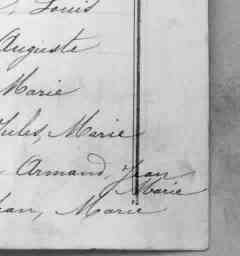 , Louis
Auguste
Marie
Jules, Marie
Armand, Jean
Marie
Jean, Marie